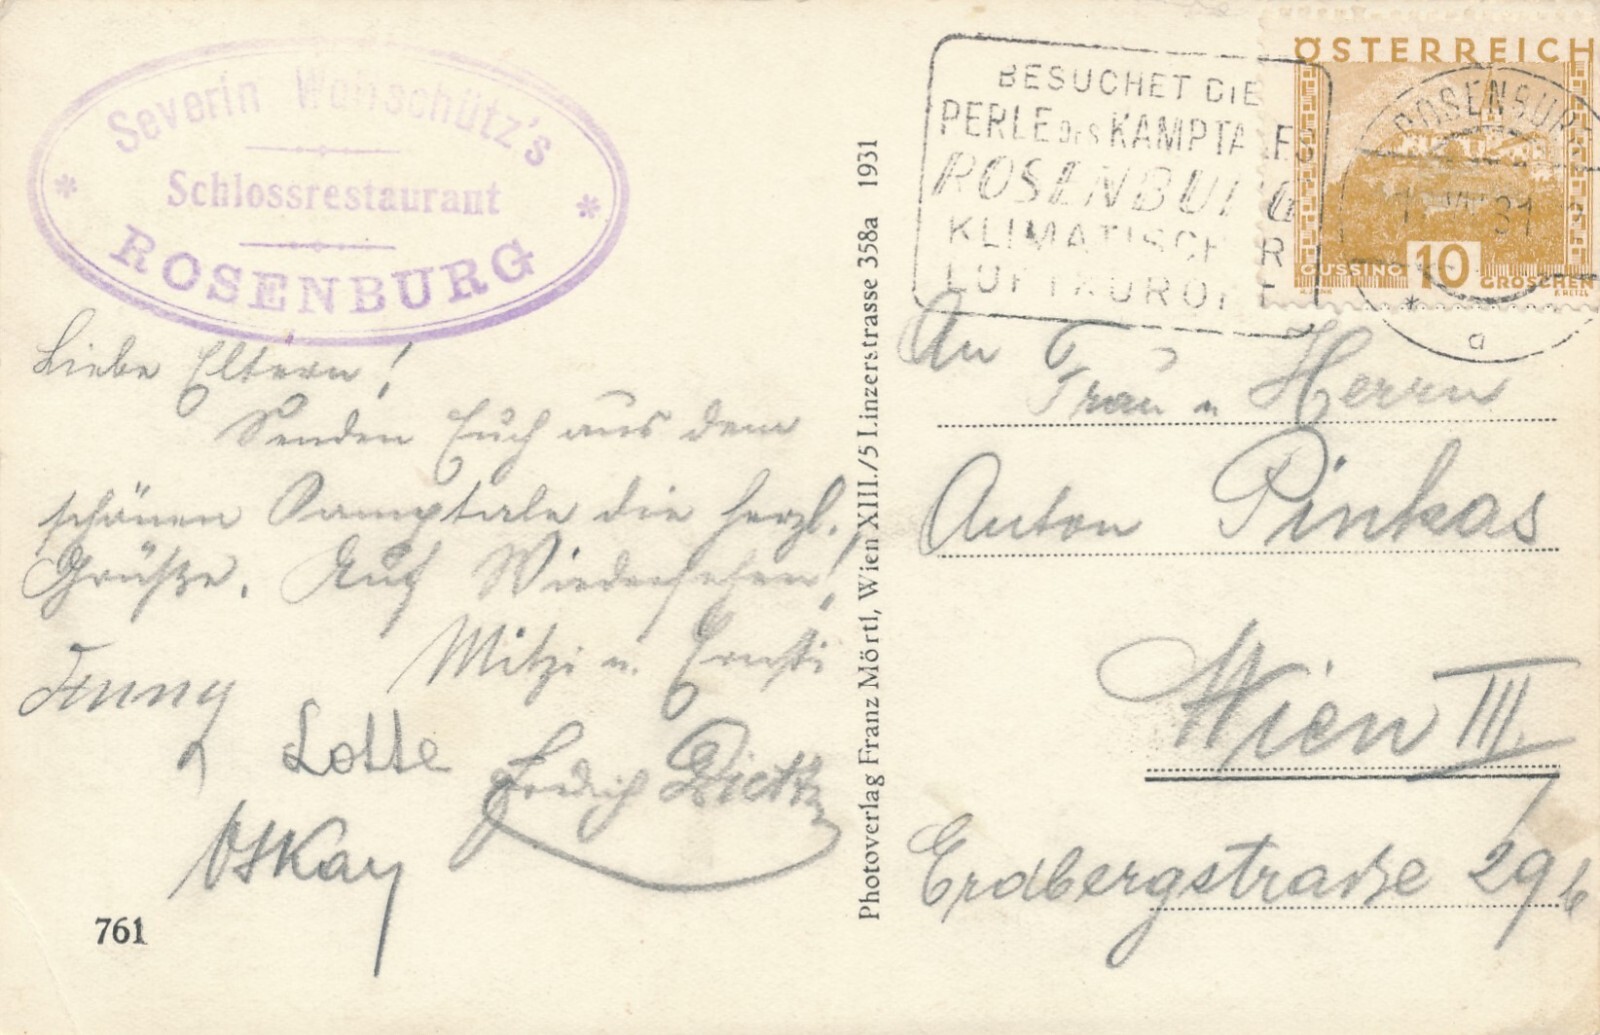 Severin Wanschütz's
Schlossrestaurant
ROSENBURG
Liebe Eltern!
Senden Euch aus dem
schönen Kamptale die herzl.
Grüße. Auf Wiedersehen!
Mitzi u. Ernsti
Lotte
761
Photoverlag Franz Mörtl, Wien XIII./5 Linzerstrasse 358a 1931
BESUCHET DIE
PERLE DES KAMPTALES
ROSENBURG
KLIMATISCHER
LUFTKURORT
ÖSTERREICH
GÜSSING 10 GROSCHEN
ROSENBURG
31
a
An
Frau u Herrn
Anton Pinkas
Wien III
Erdbergstraße 29